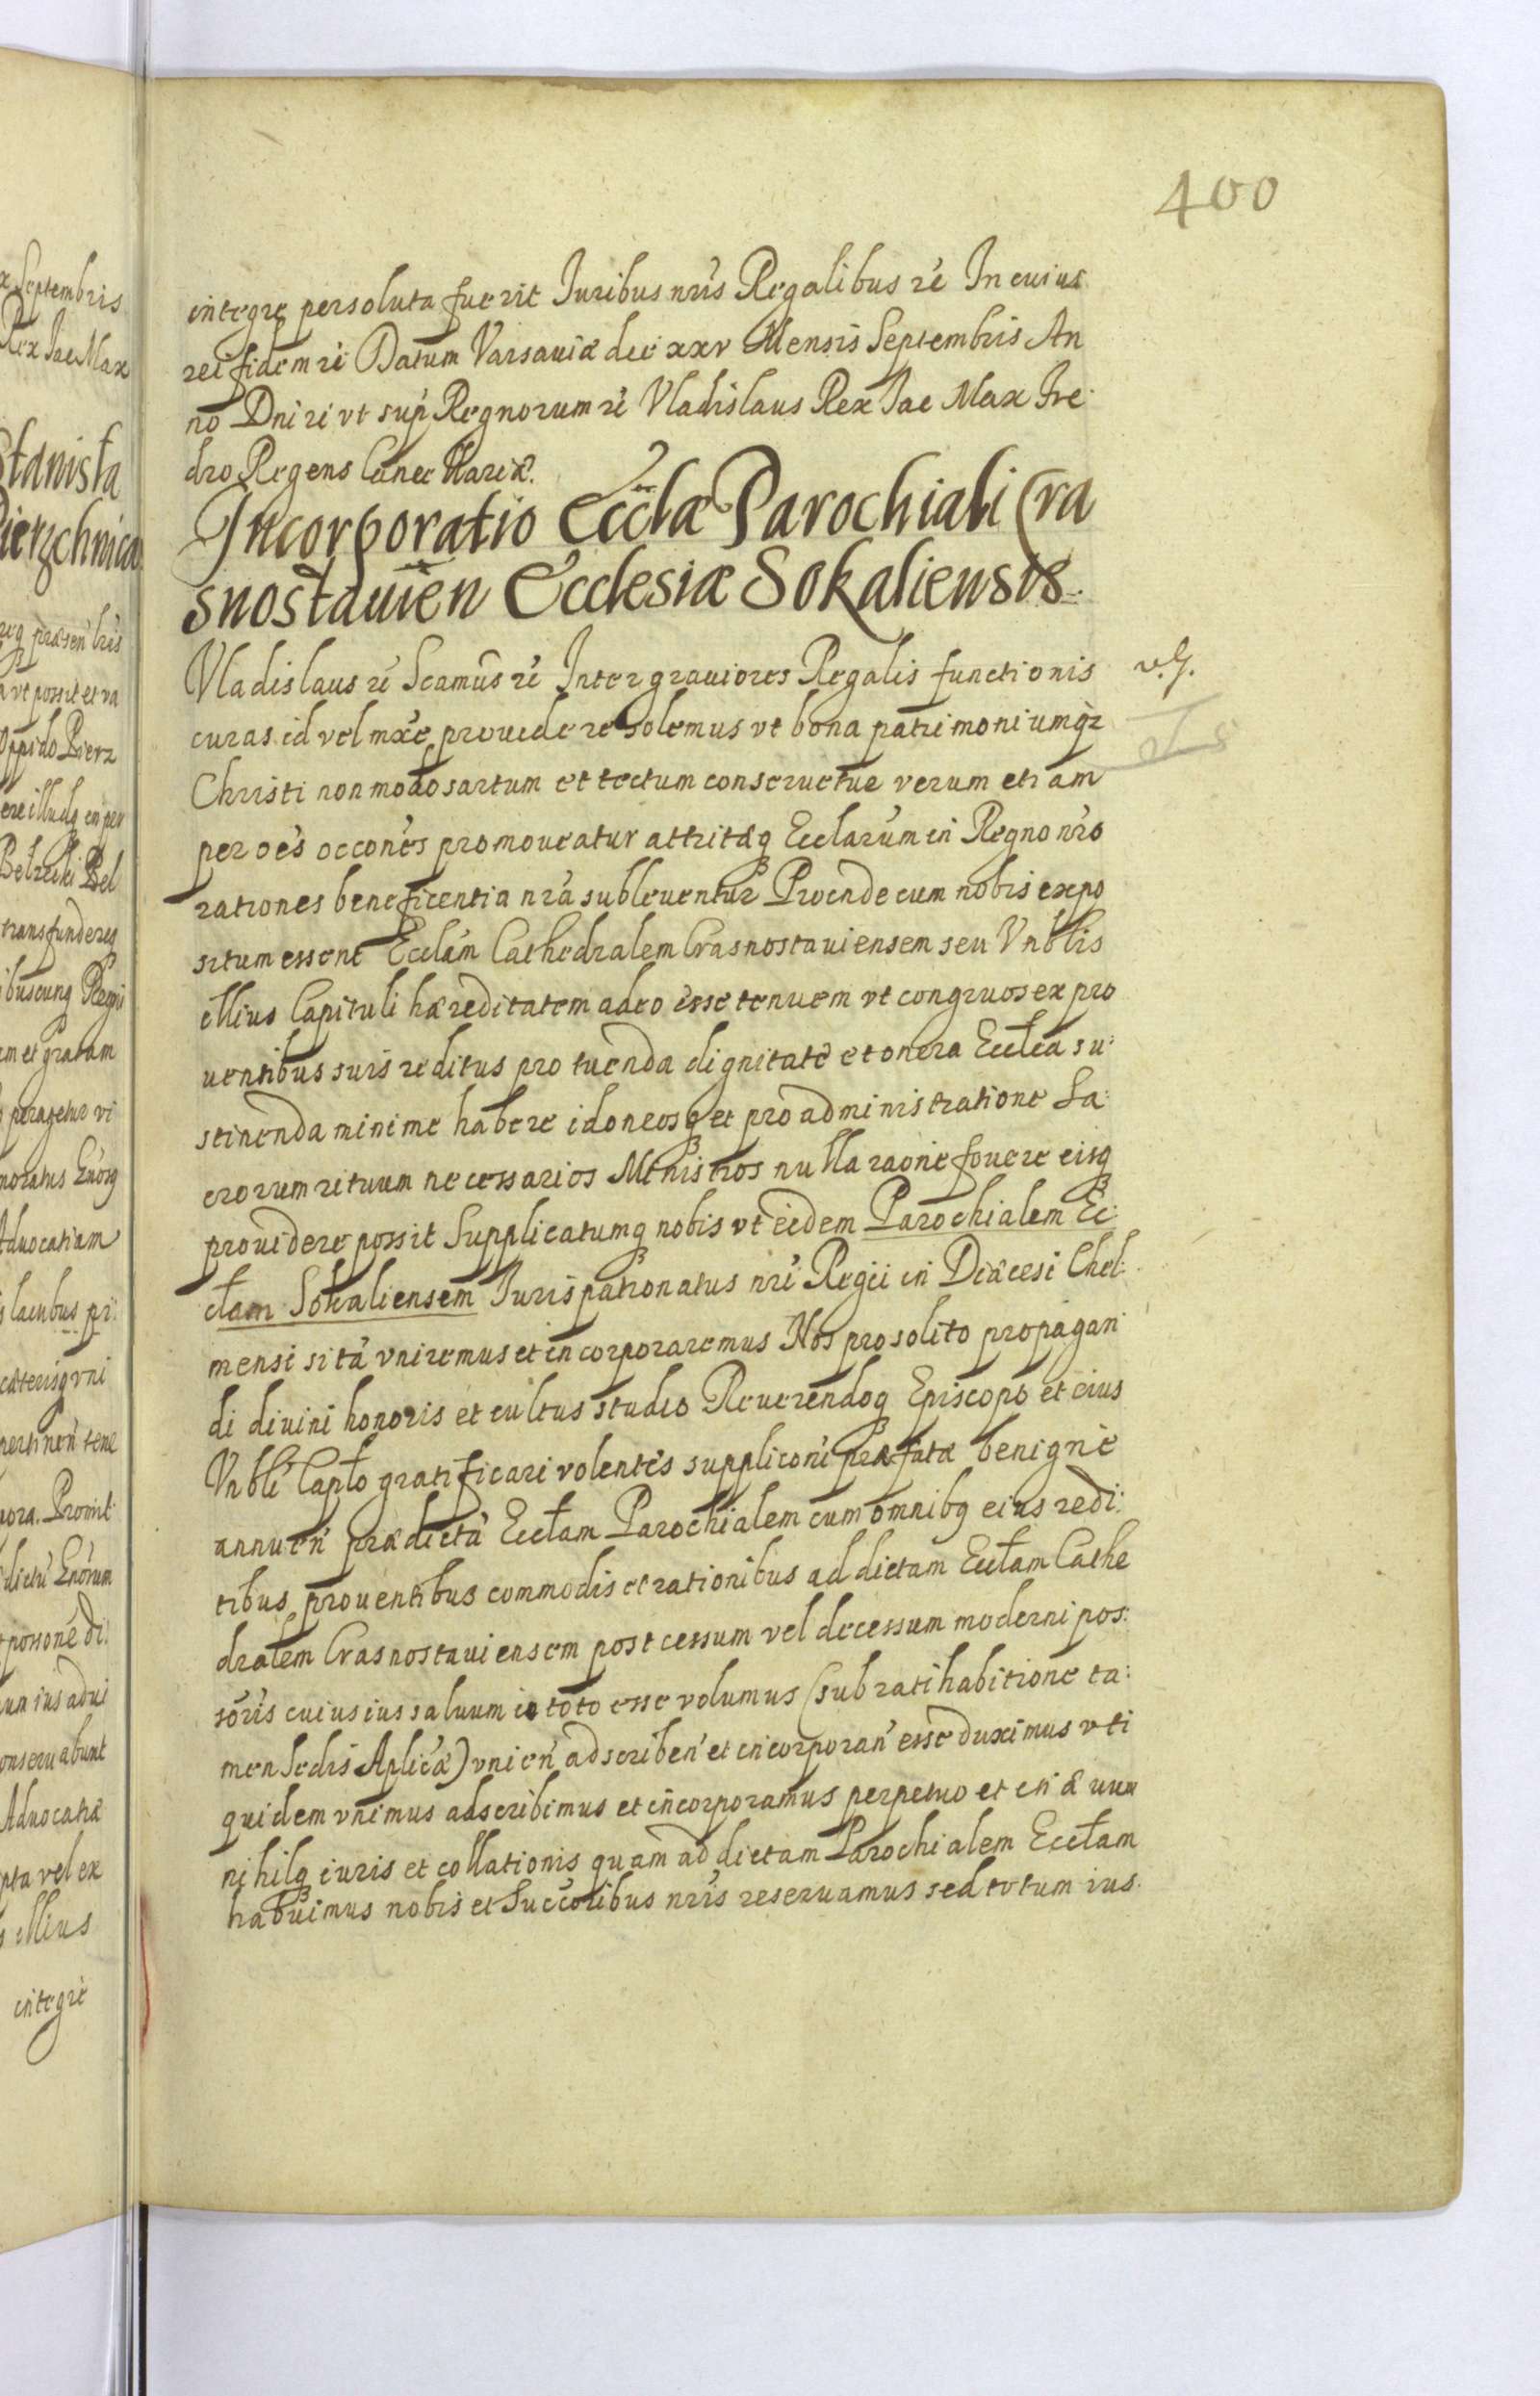 400
integre persoluta fuerit Iuribus nris Regalibus rė In cuius
rei fidem rė Datum Varsaviæ die xxv Mensis Septembris An
no Dni rė vt sup Regnorum rė Vladislaus Rex Iac Max Fre
dro Regens Cancellariæ.
Incorporatio Ecclæ Parochiali Cra
snostauien Ecclesiæ Sokaliensis.
Vladislaus rė Scamus rė Inter grauiores Regalis functionis
curas id vel mxe prouidere solemus vt bona patrimoniumq
Christi non modo sartum et tectum conseruetur verum etiam
per oes occones promoueatur attritasq Ecclarum in Regno nro
rationes beneficentia nra subleuentur Proinde cum nobis expo
situm essent Ecclam Cathedralem Crasnostauiensem seu Vnblis
illius Capituli hæreditatem adeo esse tenuem vt congruos ex pro
uentibus suis reditus pro tuenda dignitate et onera Ecclea su
stinenda minime habere idoneosq et pro administratione Sa
crorum rituum necessarios Ministros nulla raone fouere eisq
prouidere possit Supplicatumq nobis vt eidem Parochialem Ec
clam Sokaliensem Iurispatronatus nri Regii in Diæcesi Chel
mensi sitã vniremus et incorporaremus Nos pro solito propagan
di diuini honoris et cultus studio Reuerendoq Episcopo et eius
Vnbli Caplo gratificari volentes suppliconi præfatæ benigne
annuen prædictã Ecclam Parochialem cum omnibq eius redi
tibus prouentibus commodis et rationibus ad dictam Ecclam Cathe
dralem Crasnostauiensem post cessum vel decessum moderni pos
soris cuius ius saluum in toto esse volumus (sub ratihabitione ta
men Sedis Aplicæ) vnien adscriben et incorporan esse duximus vti
quidem vnimus adscribimus et incorporamus perpetuo et in æuum
nihilq iuris et collationis quam ad dictam Parochialem Ecclam
habuimus nobis et Succoribus nris reseruamus sed totum ius